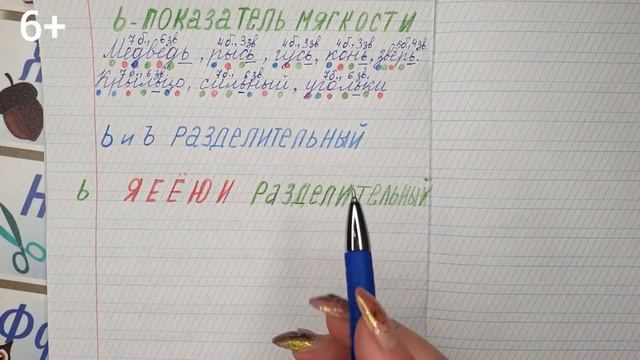 6+
Ь - ПОКАЗАТЕЛЬ МЯГКОСТИ
7б., 6зв. 4б., 3зв. 4б., 3зв. 4б., 3зв. 5б., 4зв.
Медведь, рысь, гусь, конь, зверь.
7б., 6зв. 7б., 6зв. 7б., 6зв.
Крыльцо, сильный, угольки
Ь и Ъ РАЗДЕЛИТЕЛЬНЫЙ
Ь Я Е Ё Ю И РАЗДЕЛИТЕЛЬНЫЙ
Н
Фф